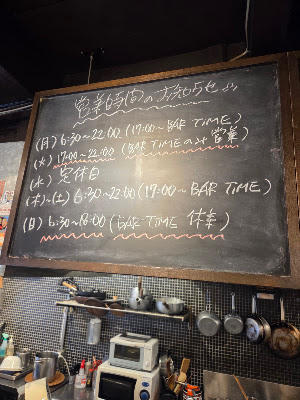 営業時間のお知らせ♪
(月) 6:30~22:00 (17:00~ BAR TIME)
(火) 17:00~22:00 (BAR TIMEのみ営業)
(水) 定休日
(木)~(土) 6:30~22:00 (17:00~ BAR TIME)
(日) 6:30~18:00 (BAR TIME 休業)